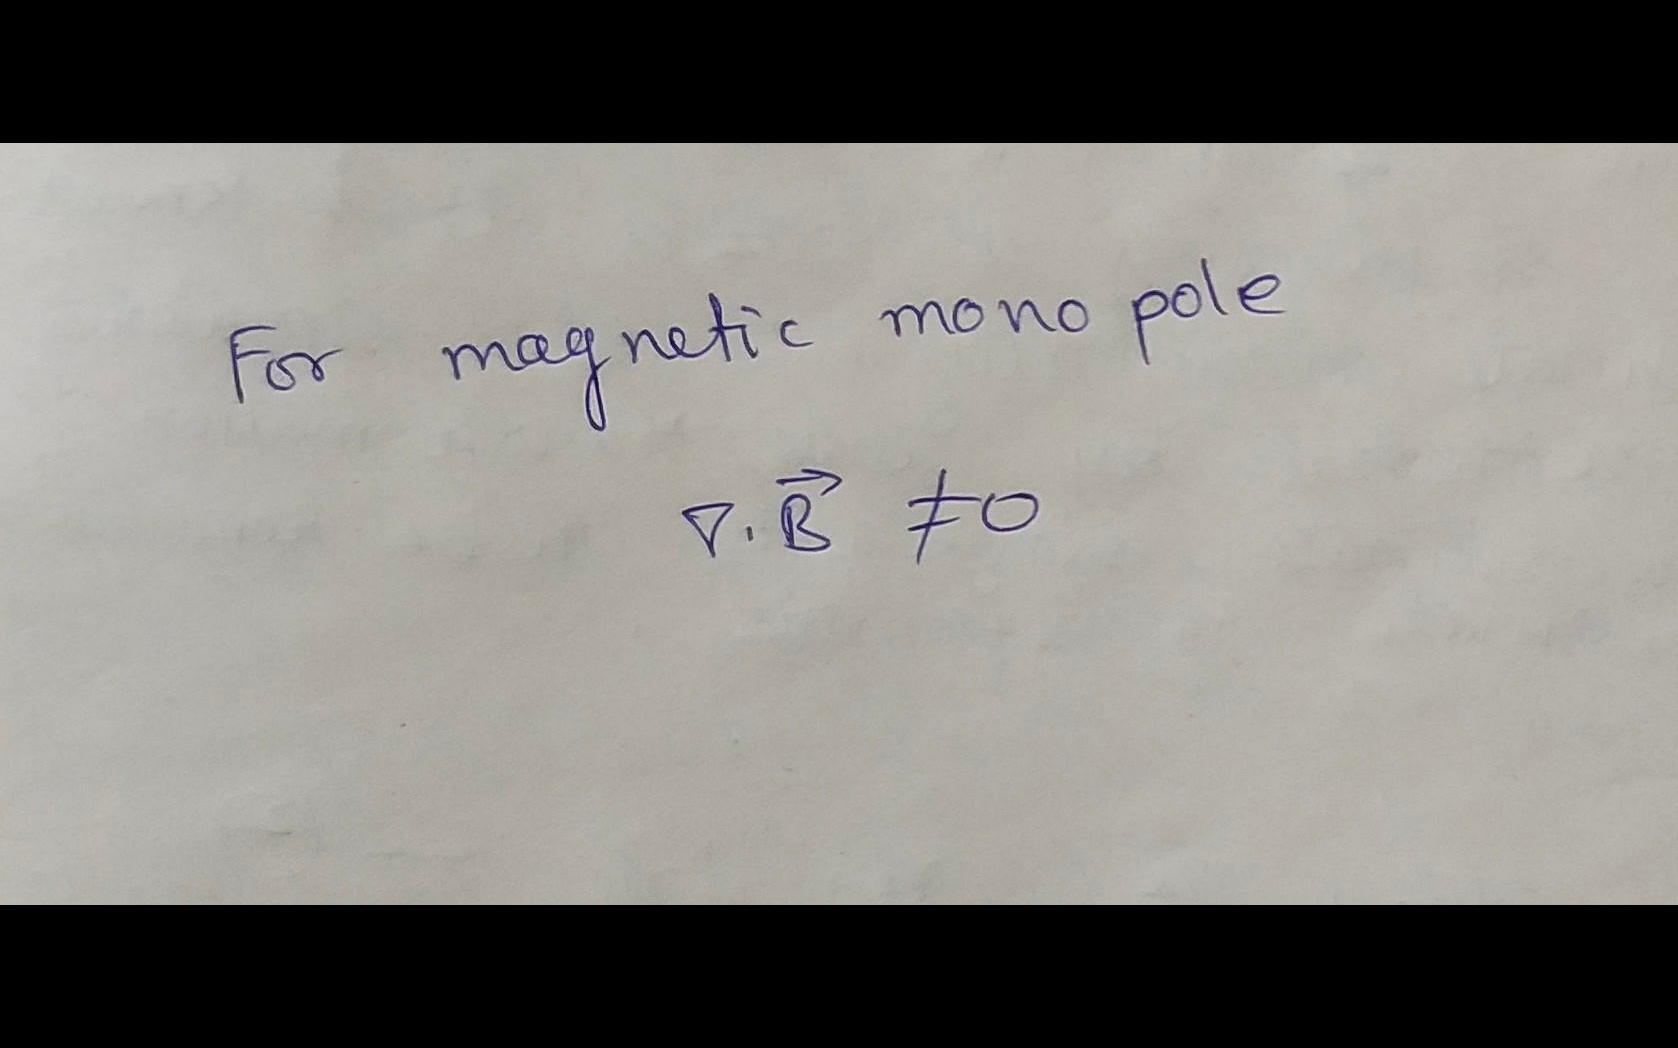 For magnetic mono pole
∇. B⃗ ≠0